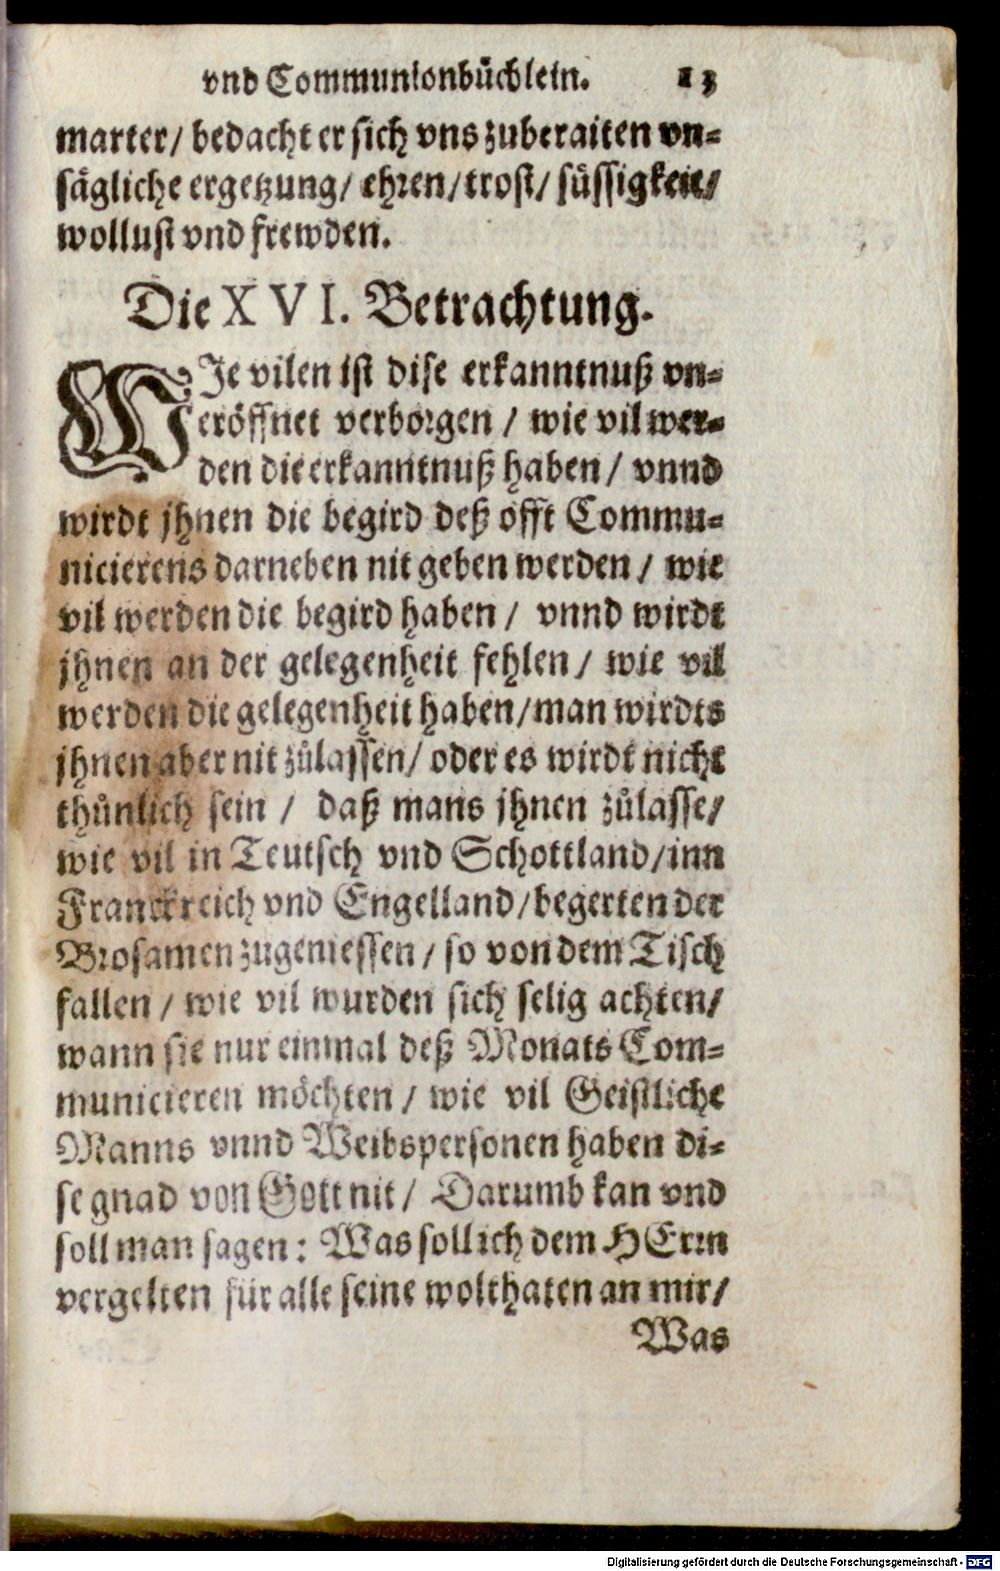 vnd Communionbüchlein. 13
marter/ bedacht er sich vns zuberaiten vn-
sägliche ergetzung/ ehren/ trost/ süssigkeit/
wollust vnd frewden.
Die XVI. Betrachtung.
WJe vilen ist dise erkanntnuß vn-
eröffnet verborgen / wie vil wer-
den die erkanntnuß haben / vnnd
wirdt jhnen die begird deß offt Commu-
nicierens darneben nit geben werden / wie
vil werden die begird haben / vnnd wirdt
jhnen an der gelegenheit fehlen / wie vil
werden die gelegenheit haben/ man wirdts
jhnen aber nit zůlassen/ oder es wirdt nicht
thůnlich sein / daß mans jhnen zůlasse/
wie vil in Teutsch vnd Schottland/ inn
Franckreich vnd Engelland/ begerten der
Brosamen zugeniessen / so von dem Tisch
fallen / wie vil wurden sich selig achten/
wann sie nur einmal deß Monats Com-
municieren möchten / wie vil Geistliche
Manns vnnd Weibspersonen haben di-
se gnad von Gott nit / Darumb kan vnd
soll man sagen: Was soll ich dem HErrn
vergelten für alle seine wolthaten an mir/
Was
Digitalisierung gefördert durch die Deutsche Forschungsgemeinschaft - DFG